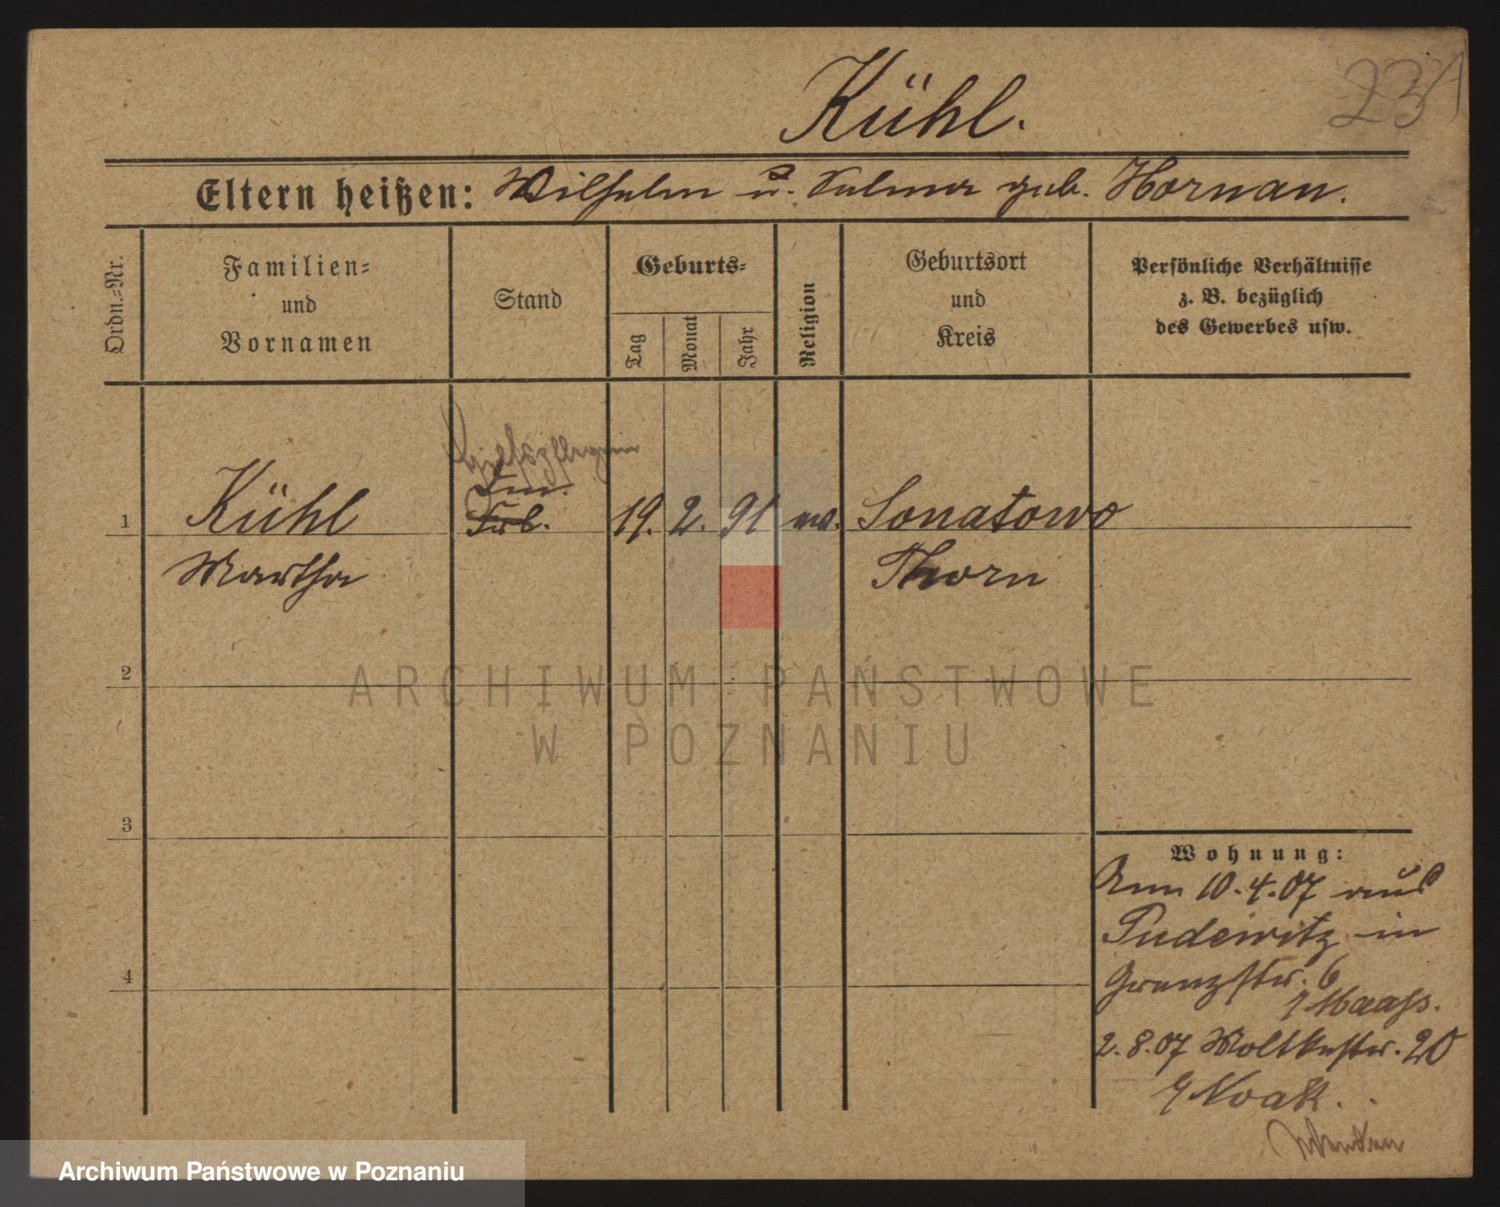 Kühl.
23
Eltern heißen: Wilhelm u. Salma geb. Hornan.
Ordn.-Nr.
Familien-
und
Vornamen
Stand
Geburts-
Tag
Monat
Jahr
Religion
Geburtsort
und
Kreis
Persönliche Verhältnisse
z. B. bezüglich
des Gewerbes usw.
Hilfspflegerin
1
Kühl
19. 2. 91
Sonatowo
Martha
Thorn
2
3
4
Wohnung:
10.4.07 aus
Pudewitz in
Grenzstr. 6
Maass.
2.8.07 Moltkestr. 20
Noak.
Wenden
ARCHIWUM PAŃSTWOWE
W POZNANIU
Archiwum Państwowe w Poznaniu